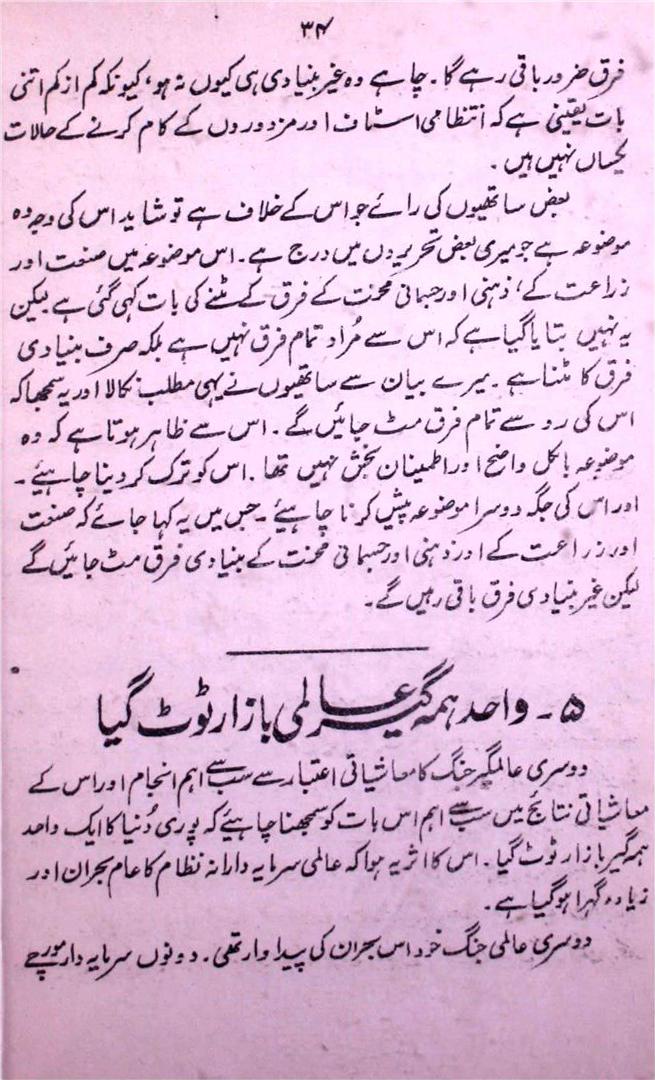 ۳۴
فرق ضرور باقی رہے گا۔ چاہے وہ غیر بنیادی ہی کیوں نہ ہو، کیونکہ کم از کم اتنی
بات یقینی ہے کہ انتظامی اسٹاف اور مزدوروں کے کام کرنے کے حالات
یکساں نہیں ہیں۔
بعض ساتھیوں کی رائے جو اس کے خلاف ہے تو شاید اس کی وجہ وہ
موضوعہ ہے جو میری بعض تحریروں میں درج ہے۔ اس موضوعہ میں صنعت اور
زراعت کے، ذہنی اور جسمانی محنت کے فرق کے مٹنے کی بات کہی گئی ہے لیکن
یہ نہیں بتایا گیا ہے کہ اس سے مُراد تمام فرق نہیں ہے بلکہ صرف بنیادی
فرق کا مٹنا ہے۔ میرے بیان سے ساتھیوں نے یہی مطلب نکالا اور یہ سمجھا کہ
اس کی رو سے تمام فرق مٹ جائیں گے۔ اس سے ظاہر ہوتا ہے کہ وہ
موضوعہ بالکل واضح اور اطمینان بخش نہیں تھا۔ اس کو ترک کر دینا چاہیئے۔
اور اس کی جگہ دوسرا موضوعہ پیش کرنا چاہیئے۔ جس میں یہ کہا جائے کہ صنعت
اور زراعت کے اور ذہنی اور جسمانی محنت کے بنیادی فرق مٹ جائیں گے
لیکن غیر بنیادی فرق باقی رہیں گے۔
۵۔ واحد ہمہ گیر عالمی بازار ٹوٹ گیا
دوسری عالمگیر جنگ کا معاشیاتی اعتبار سے سب سے اہم انجام اور اس کے
معاشیاتی نتائج میں سب سے اہم اس بات کو سمجھنا چاہیئے کہ پوری دُنیا کا ایک واحد
ہمہ گیر بازار ٹوٹ گیا۔ اس کا اثر یہ ہوا کہ عالمی سرمایہ دارانہ نظام کا عام بحران اور
زیادہ گہرا ہو گیا ہے۔
دوسری عالمی جنگ خود اس بحران کی پیداوار تھی۔ دونوں سرمایہ دار مورچے